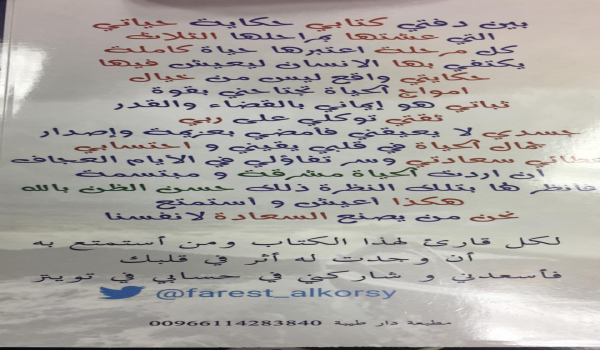 بين دفتي كتابي حكايت حياتي
التي عشتها بمراحلها الثلاث
كل مرحلت اعتبرها حياة كاملت
يكتفي بها الانسان ليعيش فيها
حكايتي واقع ليس من خيال
امواج الحياة تجتاحني بقوة
ثباتي هو إيماني بالقضاء والقدر
ثقتي توكلي على ربي
جسدي لا يعيقني فأمضي بعزيمت وإصدار
جمال الحياة في قلبي يقيني و احتسابي
عطائي سعادتي وسر تفاؤلي في الايام العجاف
أن اردت الحياة مشرقت و مبتسمت
فانظر ها بتلك النظرة ذلك حسن الظن بالله
هكذا اعيش و استمتع
نحن من يصنع السعادة لانفسنا
لكل قارئ لهذا الكتاب ومن أستمتع به
أن وجدت له أثر في قلبك
فأسعدني و شاركني في حسابي في تويتر
@farest_alkorsy
مطبعة دار طيبة 00966114283840